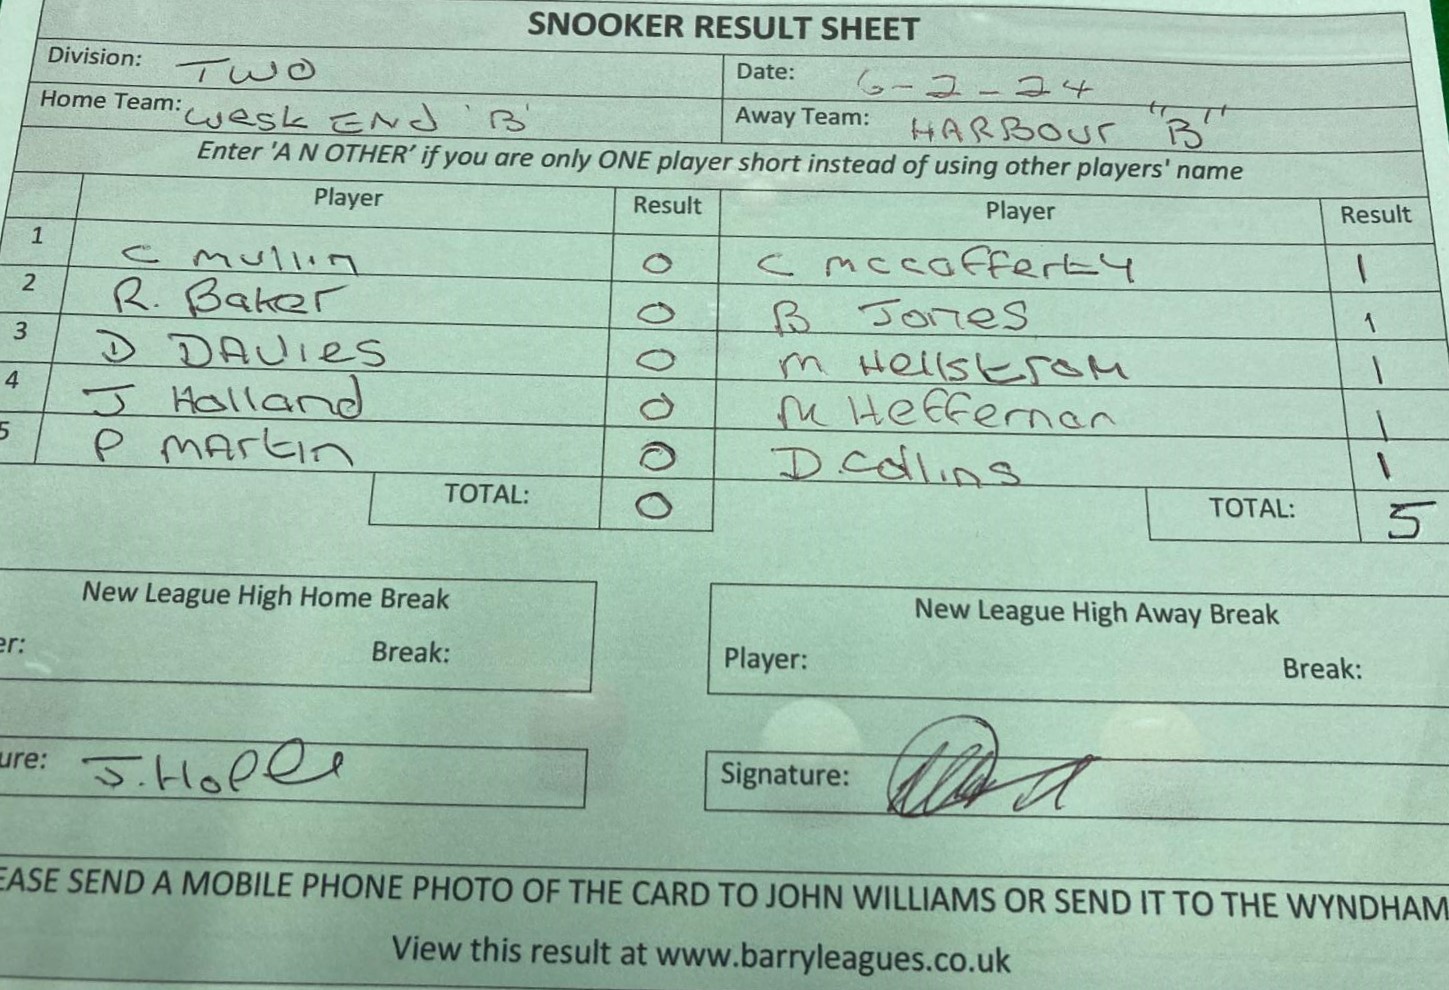 SNOOKER RESULT SHEET
Division: TWO Date: 6-2-24
Home Team: West END 'B' Away Team: HARBOUR "B"
Enter 'A N OTHER' if you are only ONE player short instead of using other players' name
Player Result Player Result
1 C Mullin 0 C McCafferty 1
2 R. Baker 0 B Jones 1
3 D DAVIES 0 M Hellstrom 1
4 J Holland 0 M Heffernan 1
5 P MARtin 0 D. Collins 1
TOTAL: 0 TOTAL: 5
New League High Home Break New League High Away Break
er: Break: Player: Break:
ure: J. Holl Signature:
EASE SEND A MOBILE PHONE PHOTO OF THE CARD TO JOHN WILLIAMS OR SEND IT TO THE WYNDHAM
View this result at www.barryleagues.co.uk